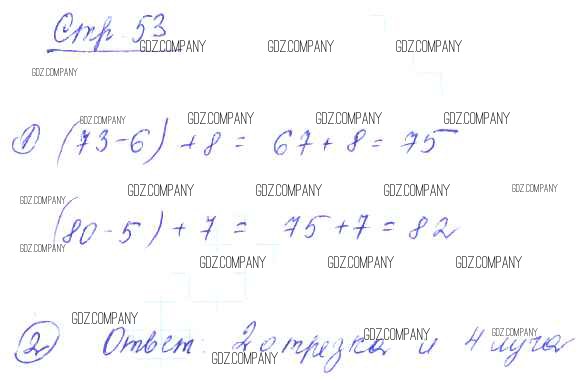 Стр 53
GDZ.COMPANY GDZ.COMPANY GDZ.COMPANY
GDZ.COMPANY
GDZ.COMPANY GDZ.COMPANY GDZ.COMPANY GDZ.COMPANY
1) (73-6)+8= 67+8=75
GDZ.COMPANY GDZ.COMPANY GDZ.COMPANY GDZ.COMPANY
GDZ.COMPANY
(80-5)+7= 75+7=82
GDZ.COMPANY
GDZ.COMPANY GDZ.COMPANY GDZ.COMPANY
GDZ.COMPANY
GDZ.COMPANY GDZ.COMPANY
2 Ответ: 2 отрезка и 4 луча
GDZ.COMPANY